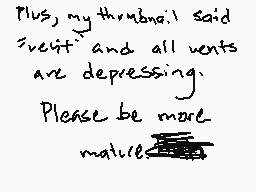 Plus, my thumbnail said
"vent" and all vents
are depressing.
Please be more
mature.